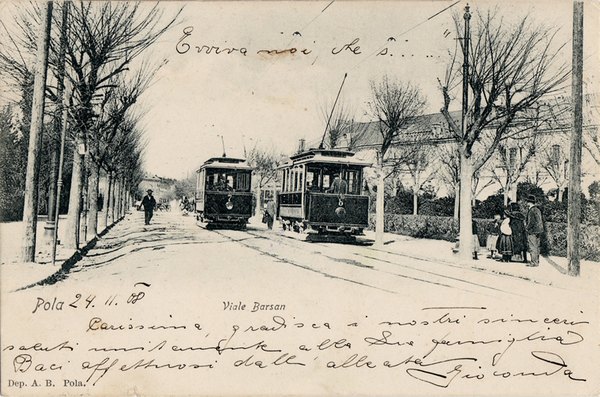 Evviva noi che s.....
Pola 24. 11. 08
Viale Barsan
Carissima, gradisca i nostri sinceri
saluti unitamente alla Sua famiglia
Baci affettuosi dall' alleata Gioconda
Dep. A. B. Pola.